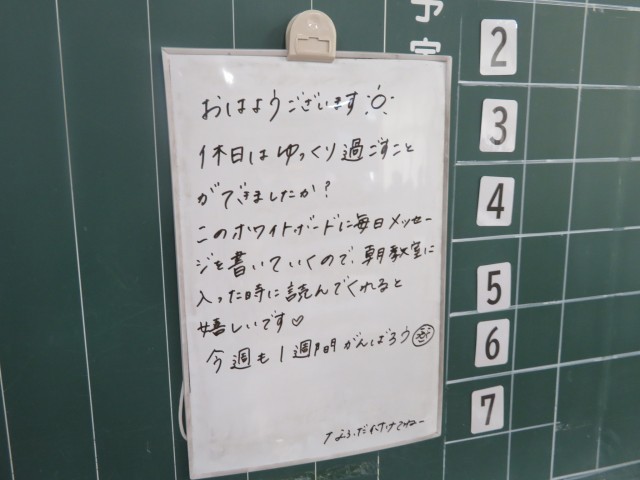 予定
おはようございます
休日はゆっくり過ごすこと
ができましたか?
このホワイトボードに毎日メッセー
ジを書いていくので、朝教室に
入った時に読んでくれると
嬉しいです♡
今週も1週間がんばろう
2
3
4
5
6
7